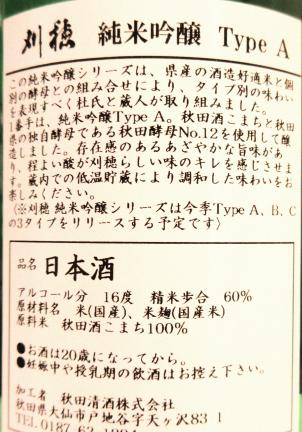 刈穂 純米吟醸 Type A
この純米吟醸シリーズは、県産の酒造好適米と個
別の酵母との組み合せにより、タイプ別の味わい
を表現すべく杜氏と蔵人が取り組みました。
1番手は、純米吟醸Type A。秋田酒こまちと秋田
県の独自酵母である秋田酵母No.12を使用して醸
造しました。存在感のあるあざやかな旨味があ
り、程よい酸が刈穂らしい味のキレを感じさせま
す。蔵内での低温貯蔵により調和した味わいをお
楽しみください。
(※刈穂 純米吟醸シリーズは今季Type A、B、C
の3タイプをリリースする予定です)
品名 日本酒
アルコール分 16度 精米歩合 60%
原材料名 米(国産)、米麹(国産米)
原料米 秋田酒こまち100%
●お酒は20歳になってから。
●妊娠中や授乳期の飲酒はお控え下さい。
加工者 秋田清酒株式会社
秋田県大仙市戸地谷字天ヶ沢83 1
TEL 0187 63